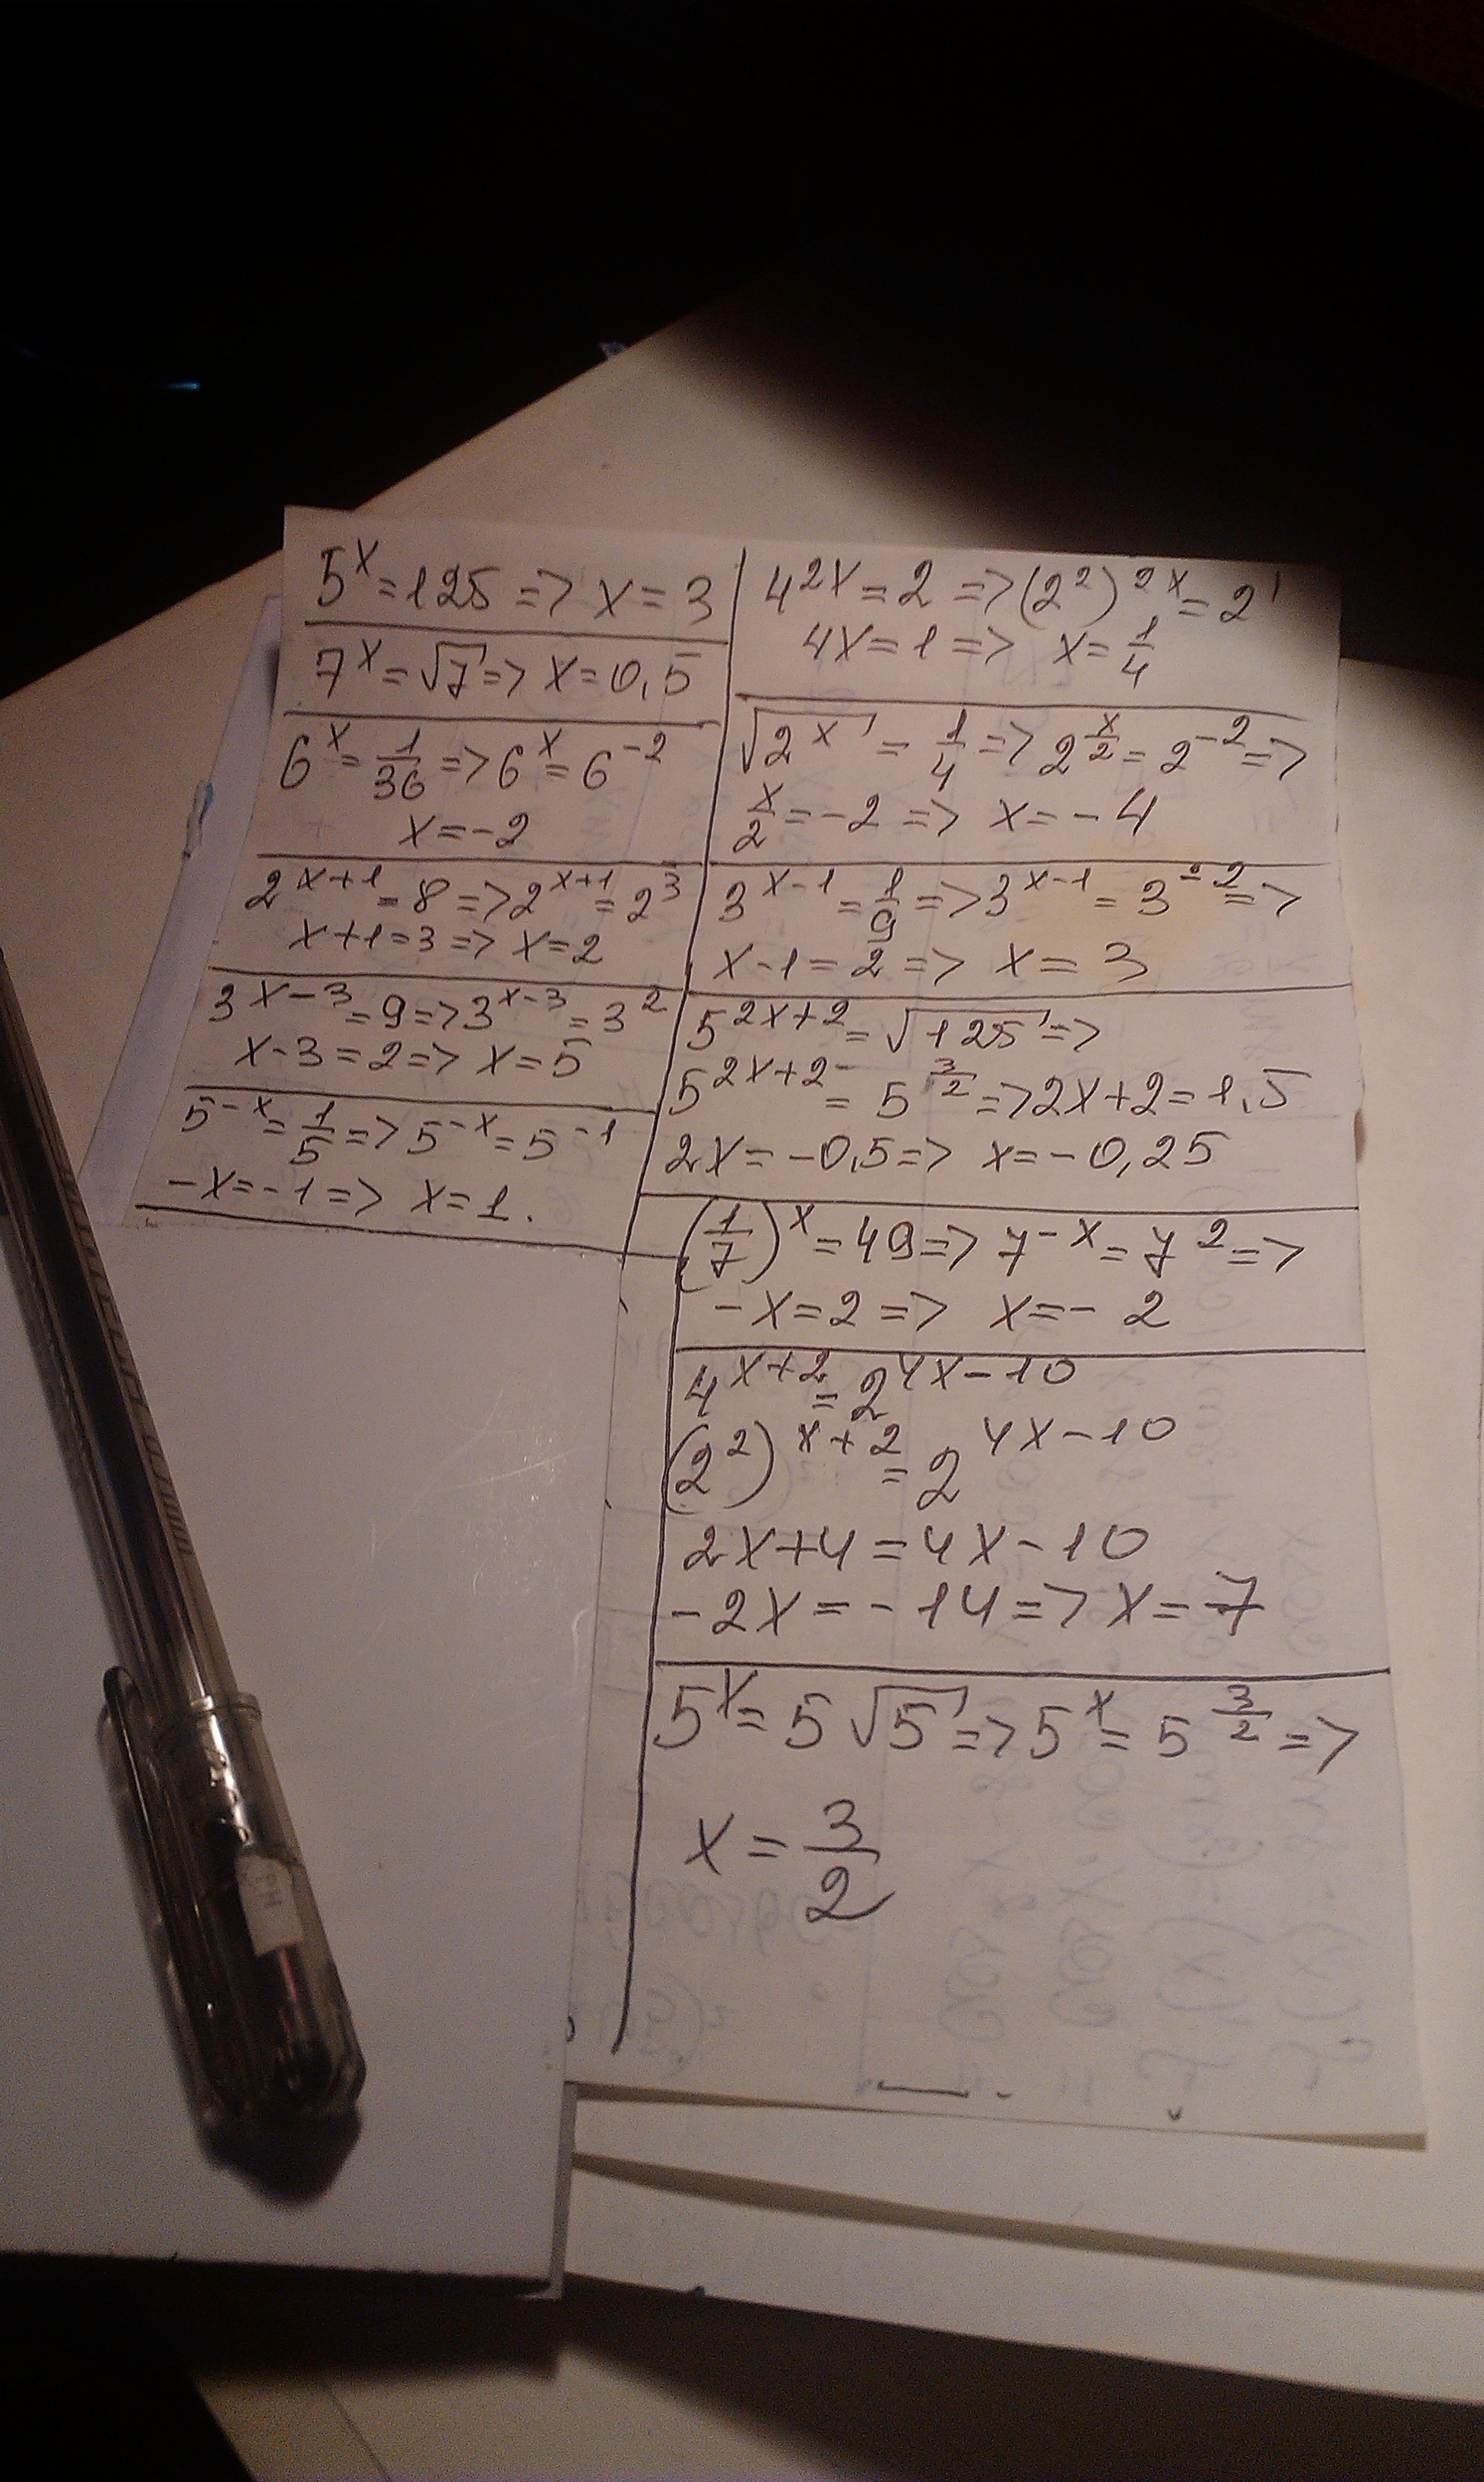 5^x = 125 => x = 3
7^x = √7 => x = 0,5
6^x = 1/36 => 6^x = 6^-2
x = -2
2^x+1 = 8 => 2^x+1 = 2^3
x+1 = 3 => x = 2
3^x-3 = 9 => 3^x-3 = 3^2
x-3 = 2 => x = 5
5^-x = 1/5 => 5^-x = 5^-1
-x = -1 => x = 1.
4^2x = 2 => (2^2)^2x = 2^1
4x = 1 => x = 1/4
√2^x = 1/4 => 2^x/2 = 2^-2 =>
x/2 = -2 => x = -4
3^x-1 = 1/9 => 3^x-1 = 3^-2 =>
x-1 = 2 => x = 3
5^2x+2 = √125 =>
5^2x+2 = 5^3/2 => 2x+2 = 1,5
2x = -0,5 => x = -0,25
(1/7)^x = 49 => 7^-x = 7^2 =>
-x = 2 => x = -2
4^x+2 = 2^4x-10
(2^2)^x+2 = 2^4x-10
2x+4 = 4x-10
-2x = -14 => x = 7
5^x = 5√5 => 5^x = 5^3/2 =>
x = 3/2